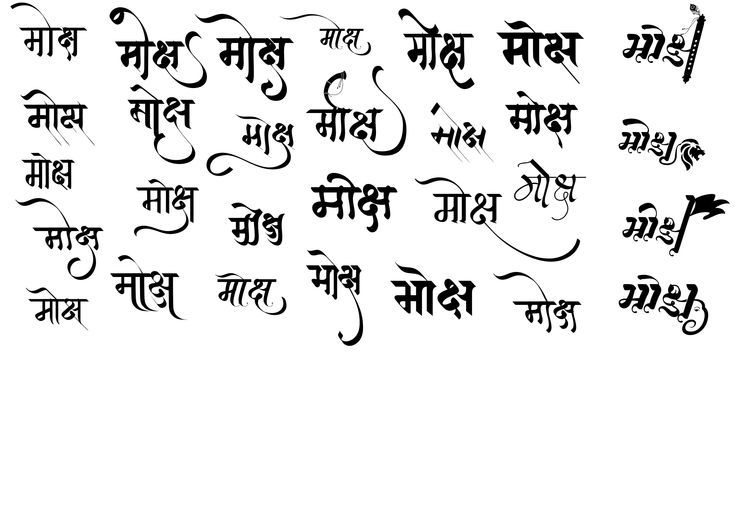 मोक्ष मोक्ष मोक्ष मोक्ष मोक्ष मोक्ष मोक्ष
मोक्ष मोक्ष मोक्ष मोक्ष मोक्ष मोक्ष मोक्ष
मोक्ष मोक्ष मोक्ष मोक्ष मोक्ष मोक्ष मोक्ष
मोक्ष
मोक्ष मोक्ष मोक्ष मोक्ष मोक्ष मोक्ष मोक्ष